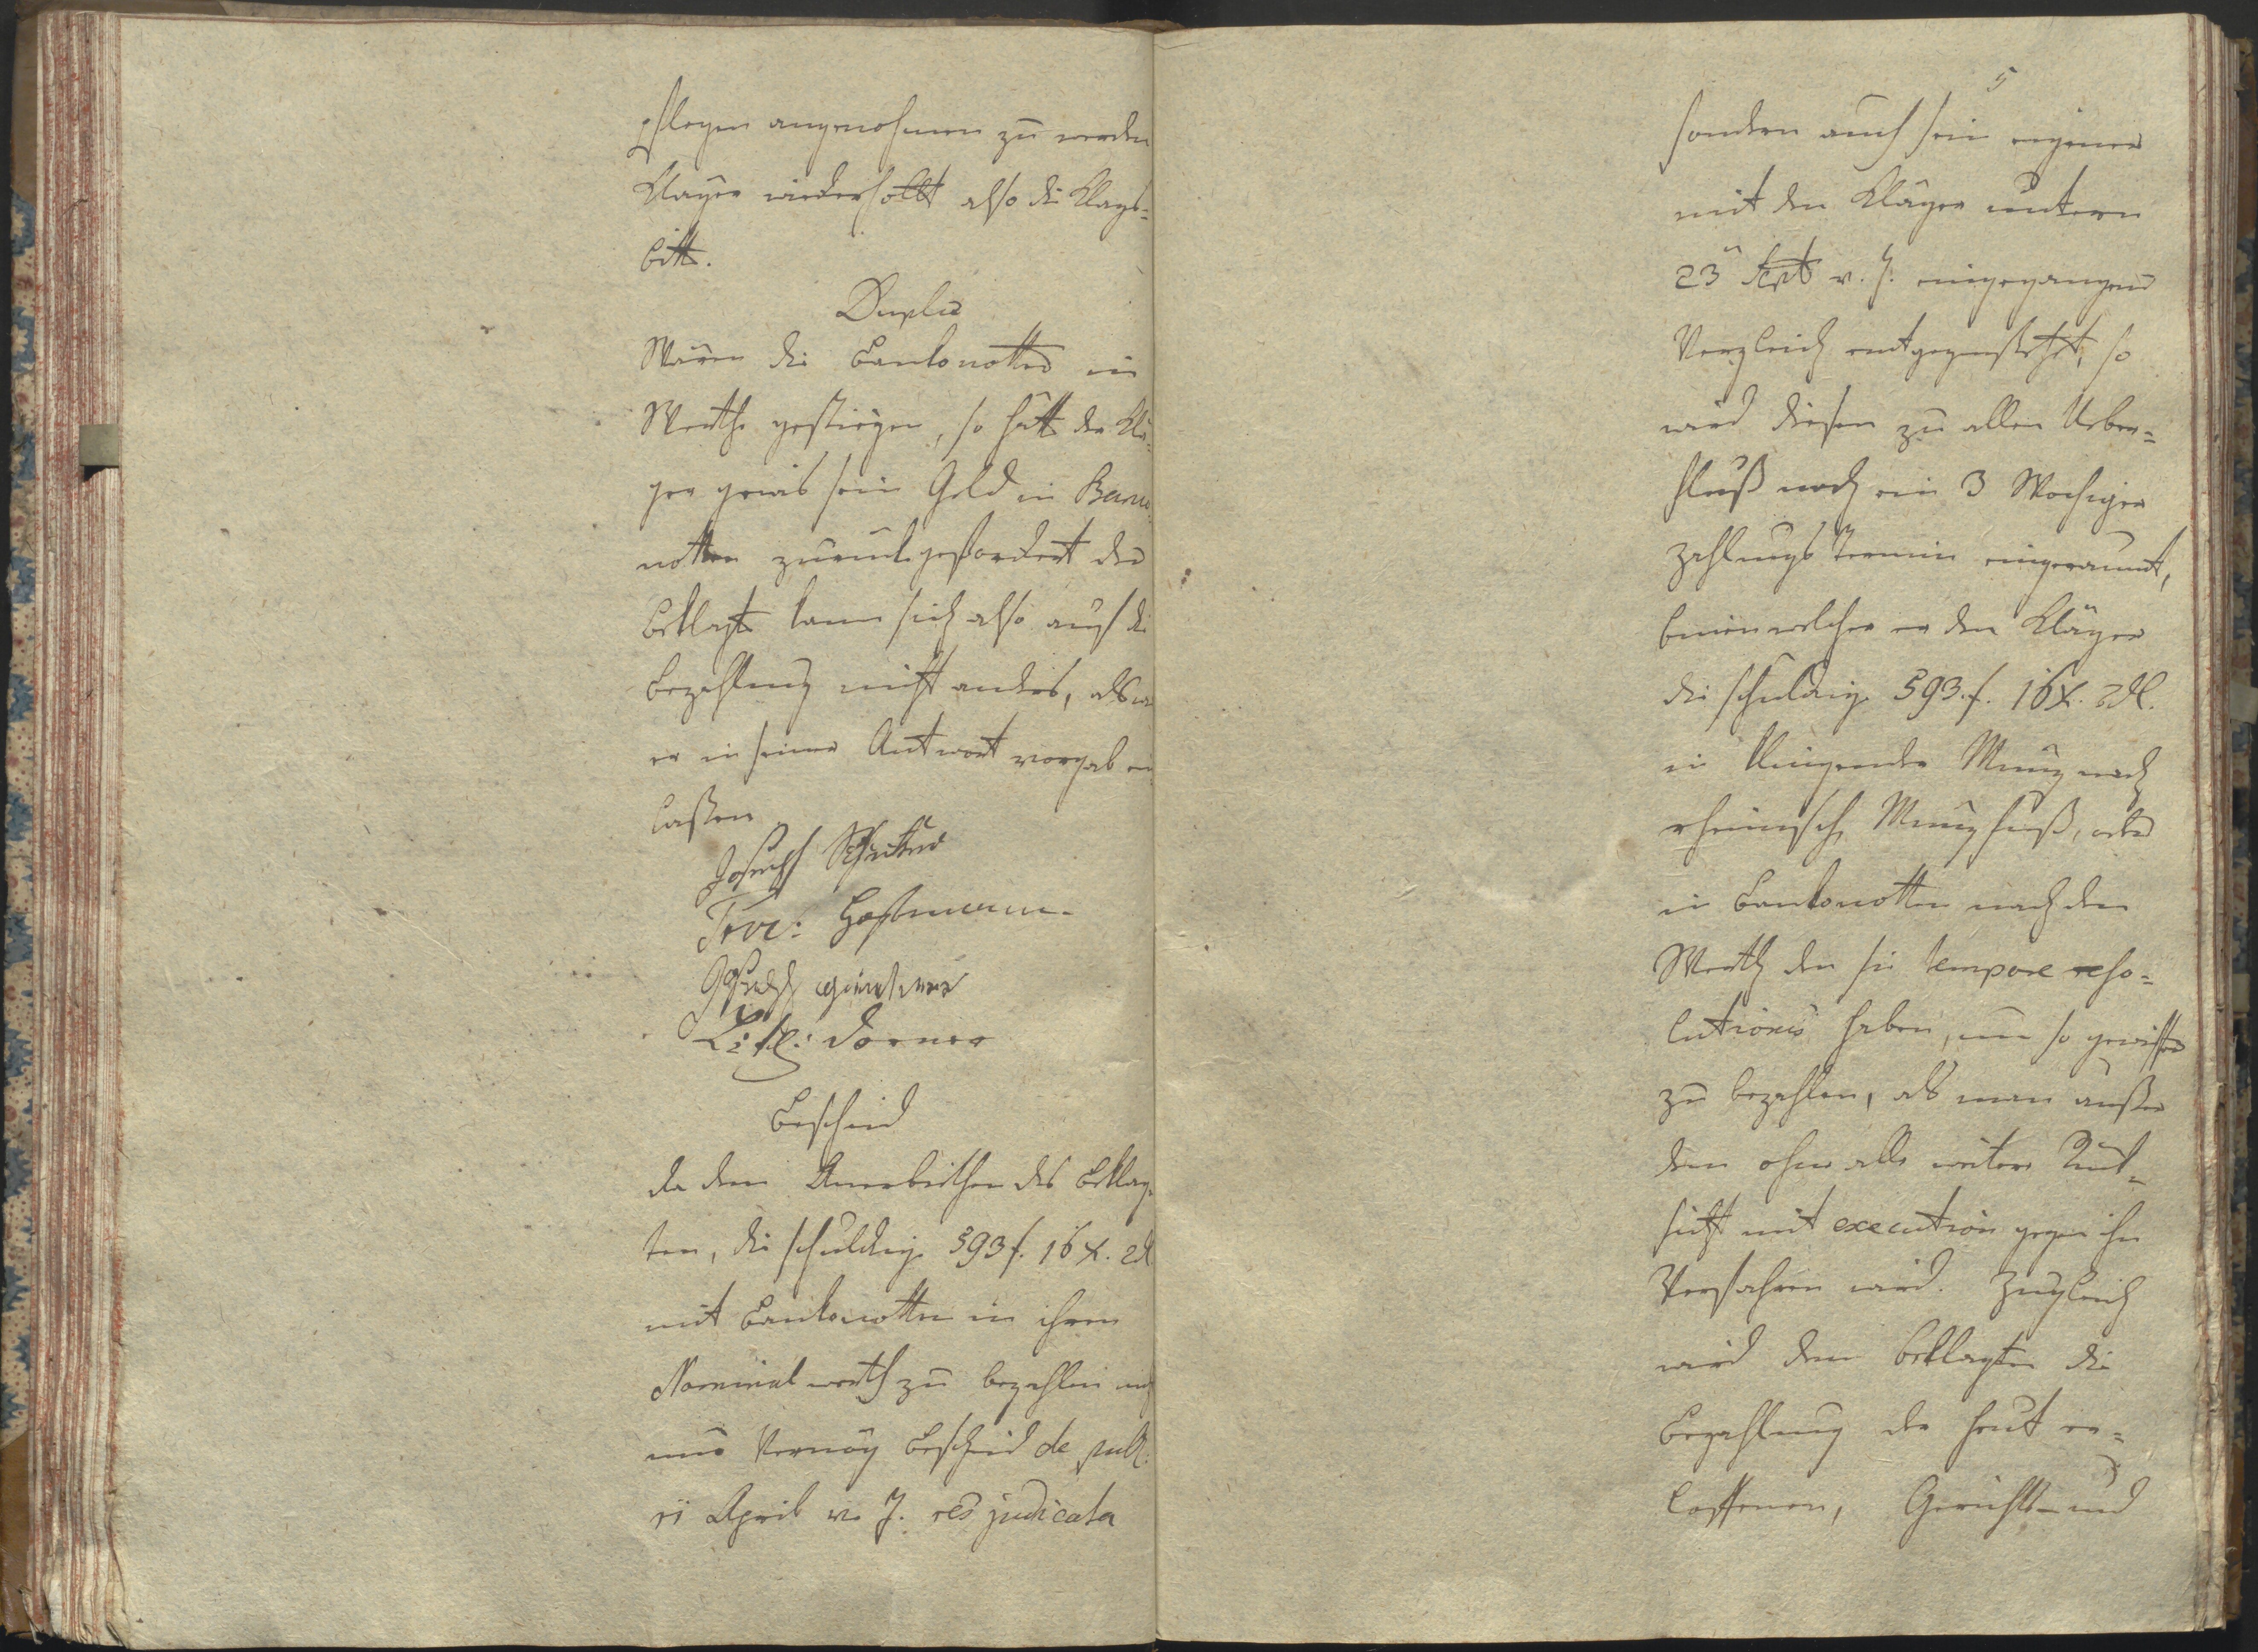 pflegen angenohmen zu werden
Klager wiederhollt also die Klags-
bitt.
Duplic
Wären die Bankonotten in
Werthe gestiegen, so hätt der Klä-
ger gewis sein Geld in Banco-
notten zuruckgefordert der
Beklagte kann sich also auf die
Bezahlung nicht anders, als wie
er in seiner Antwort vorgab ein
lassen.
Joseph
Proc: Hoffmann
Joseph
Lizt: Dorner
Bescheid
da dem Anerbiethen des Beklag-
ten, die schuldige 593 f. 16 x. 2 dl
mit Bankonotten in ihren
Nominal werth zu bezahlen nicht
nur Vermög Bescheid de publ:
11 April v. J. res judicata
5
sondern auch sein eigener
mit den Kläger untern
23 Sept v. J. eingegangener
Vergleich entgegensteht, so
wird diesen zu allen Ueber-
fluß noch ein 3 Wochiger
Zahlungs Termin eingeraumt,
binnen welcher er den Kläger
die schuldige 593. f. 16 x. 2 dl.
in klingender Münz nach
rheinisch Münzfuß, oder
in Bankonotten nach dem
Werth den sie tempore reso-
lutionis haben, um so gewisser
zu bezahlen, als man ausser
dem ohne alle weitere Rück-
sicht mit execution gegen ihn
Verfahren wird. Zugleich
wird dem Beklagten die
Bezahlung der heut er-
loffenen, Gerichts- und